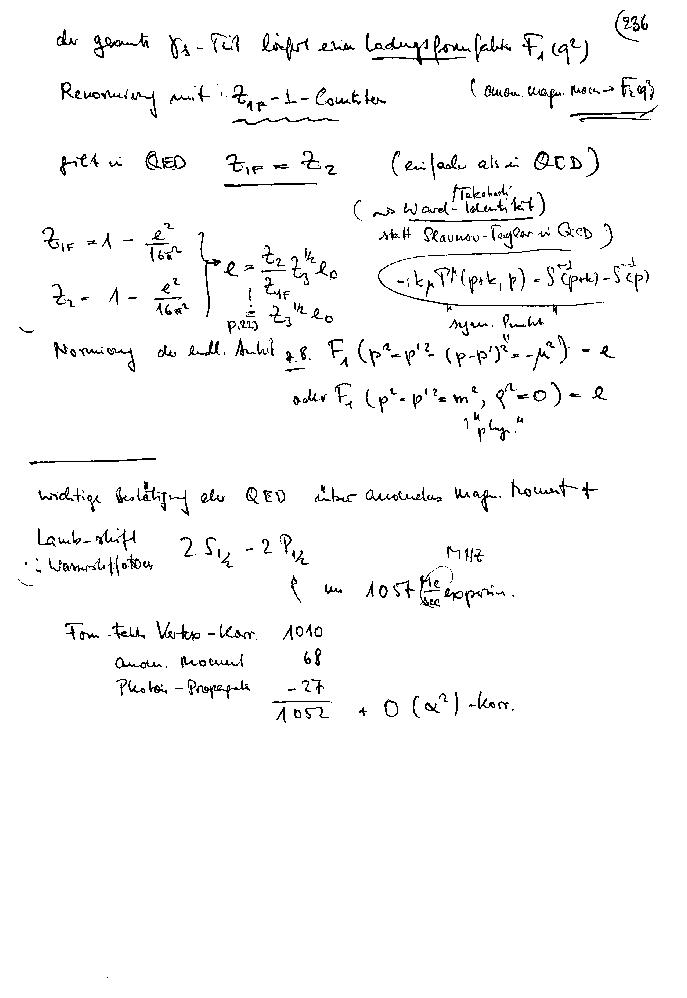 236
der gesamte γ₁-Teil liefert einen Ladungsformfaktor F₁(q²)
Renormierung mit: Z₁F - 1 - Counterterm (anom. magn. Mom → F₂(q²))
gilt in QED Z₁F = Z₂ (einfacher als in QCD)
(→ Ward-/Takahashi Identität)
statt Slavnov-Taylor in QCD)
Z₁F = 1 - e²/16π²
Z₂ = 1 - e²/16π²
→ e = Z₂/Z₁F Z₃^½ e₀
p.223 = Z₃^½ e₀
-i kμ Γ^μ(p+k, p) = S⁻¹(p+k) - S⁻¹(p)
"symm. Punkt"
Normierung der endl. Anteile z.B. F₁(p² = p'² = (p-p')² = -μ²) = e
oder F₁(p² = p'² = m², q² = 0) = e
"phys."
wichtige Bestätigung der QED über anomales magn. Moment +
Lamb-shift 2 S₁/₂ - 2 P₁/₂
: Wasserstoffatom
MHz
um 1057 Mc/sec experim.
Vertex-Korr. 1010
anom. Moment 68
Photon-Propagator -27
1052 + O(α²)-Korr.